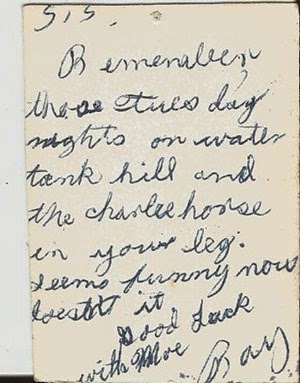 SIS,
Remember,
those tues day
nights on water
tank hill and
the charlee horse
in your leg.
seems funny now
doesnt it
Good Luck
with Moe
Ray